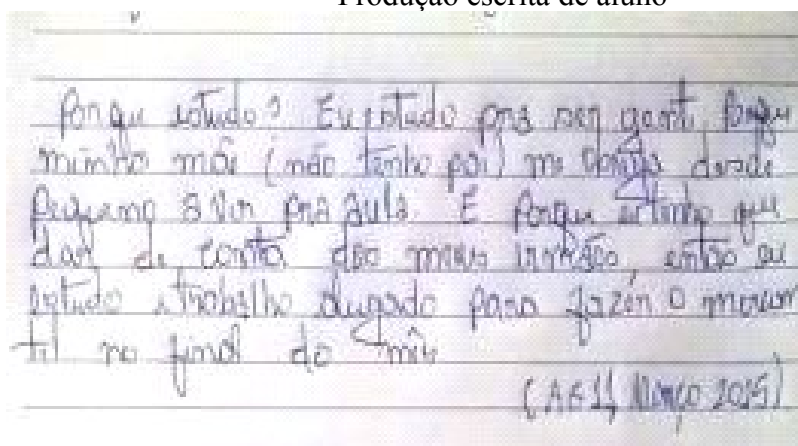 Produção escrita de aluno
Porqu estudo? Eu estudo pra ser gent, porqu
minha mãe (não tenho pai) me obriga desde
pequeno a vir pra aula. E porqu eu tenho que
dar de conta dos meus irmãos, então eu
estudo e trabalho alugado para fazer o mercan
til no final do mês
(AE11, Março 2015)